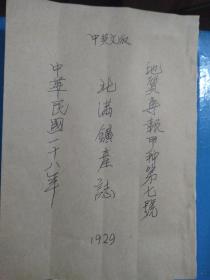 中英文版
地质专報甲种第七號
北满鑛產誌
1929
中華民國一十八年